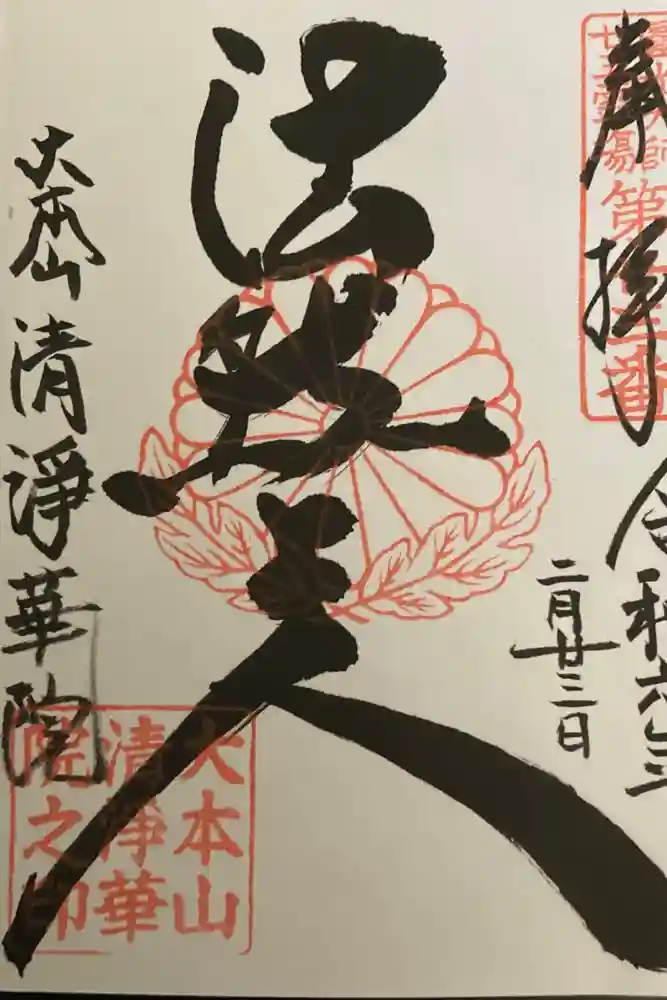 奉拝
令和六年
二月廿三日
法然上人
大本山清淨華院
大本山
清淨華
院之印